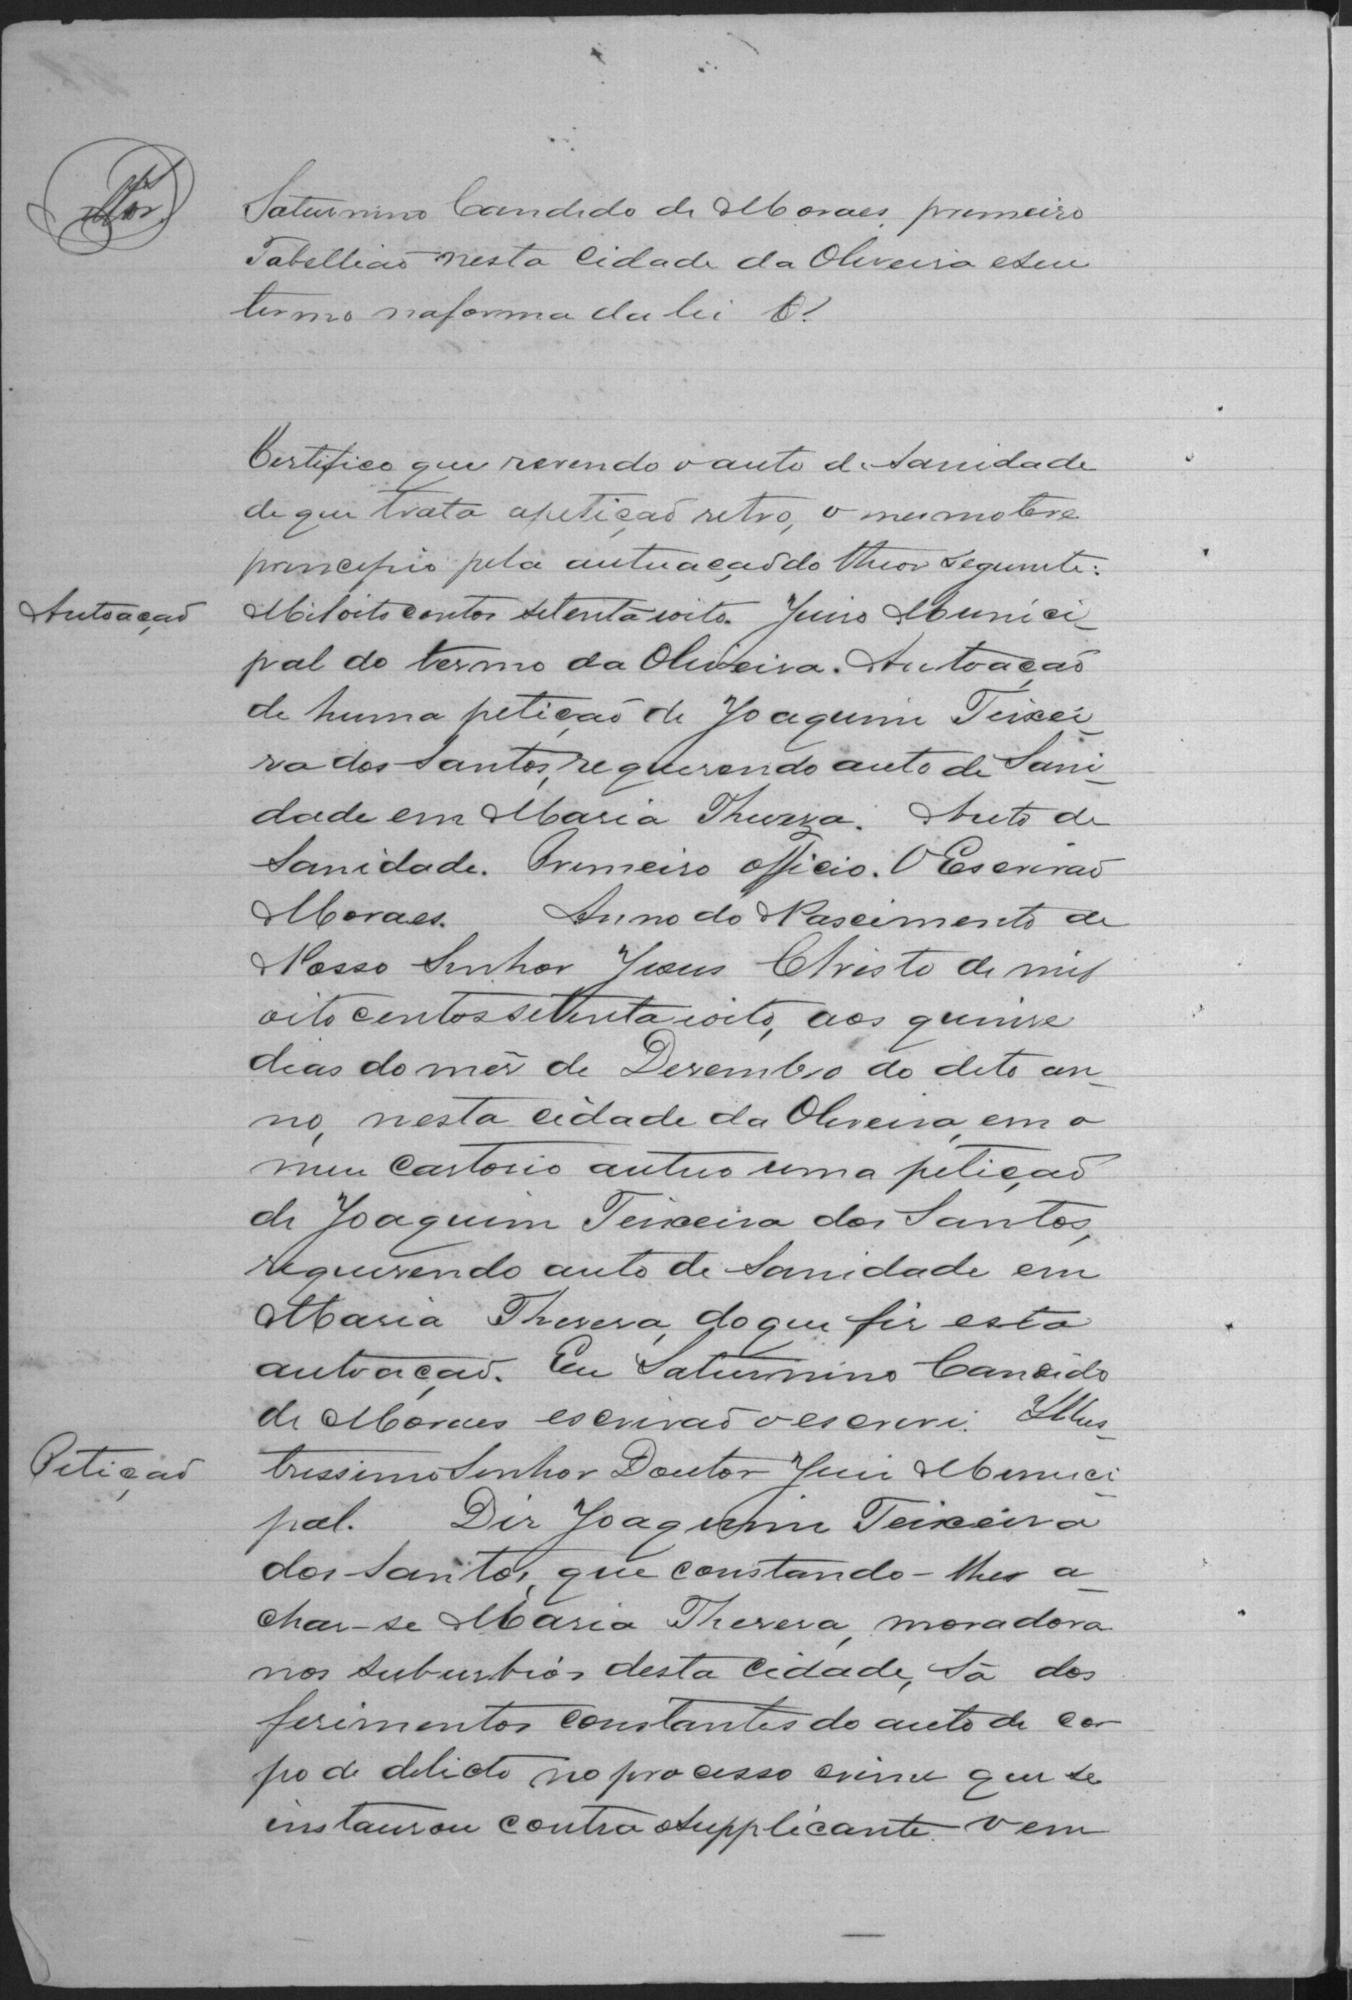 Saturnino Candido de Moraes, primeiro
Tabellião nesta Cidade da Oliveira e seu
termo na forma da lei &.
Certifico que revendo o auto de Sanidade
de que trata a petição retro, o mesmo teve
principio pela autuação do theor seguinte:
Autoação
Mil oito centos setenta e oito. Juiso Munici_
pal do termo da Oliveira. Autoação
de huma petição de Joaquim Teixei_
ra dos Santos, requerendo auto de Sani_
dade em Maria Thereza. Auto de
Sanidade. Primeiro officio. O Escrivão
Moraes. Anno do Nascimento de
Nosso Senhor Jesus Christo de mil
oito centos setenta e oito, aos quinse
dias do mês de Dezembro do dito an_
no, nesta cidade da Oliveira, em o
meu cartorio autuo uma petição
de Joaquim Teixeira dos Santos,
requerendo auto de Sanidade em
Maria Thereza, do que fiz esta
autoação. Eu Saturnino Candido
de Moraes escrivão o escrevi. Illus_
Petição
trissimo Senhor Doutor Juiz Munici_
pal. Diz Joaquim Teixeira
dos Santos, que constando-lhe a_
char-se Maria Thereza, moradora
nos suburbios desta cidade, sã dos
ferimentos constantes do auto de cor
po de delicto no processo crime que se
instaurou contra o supplicante vem